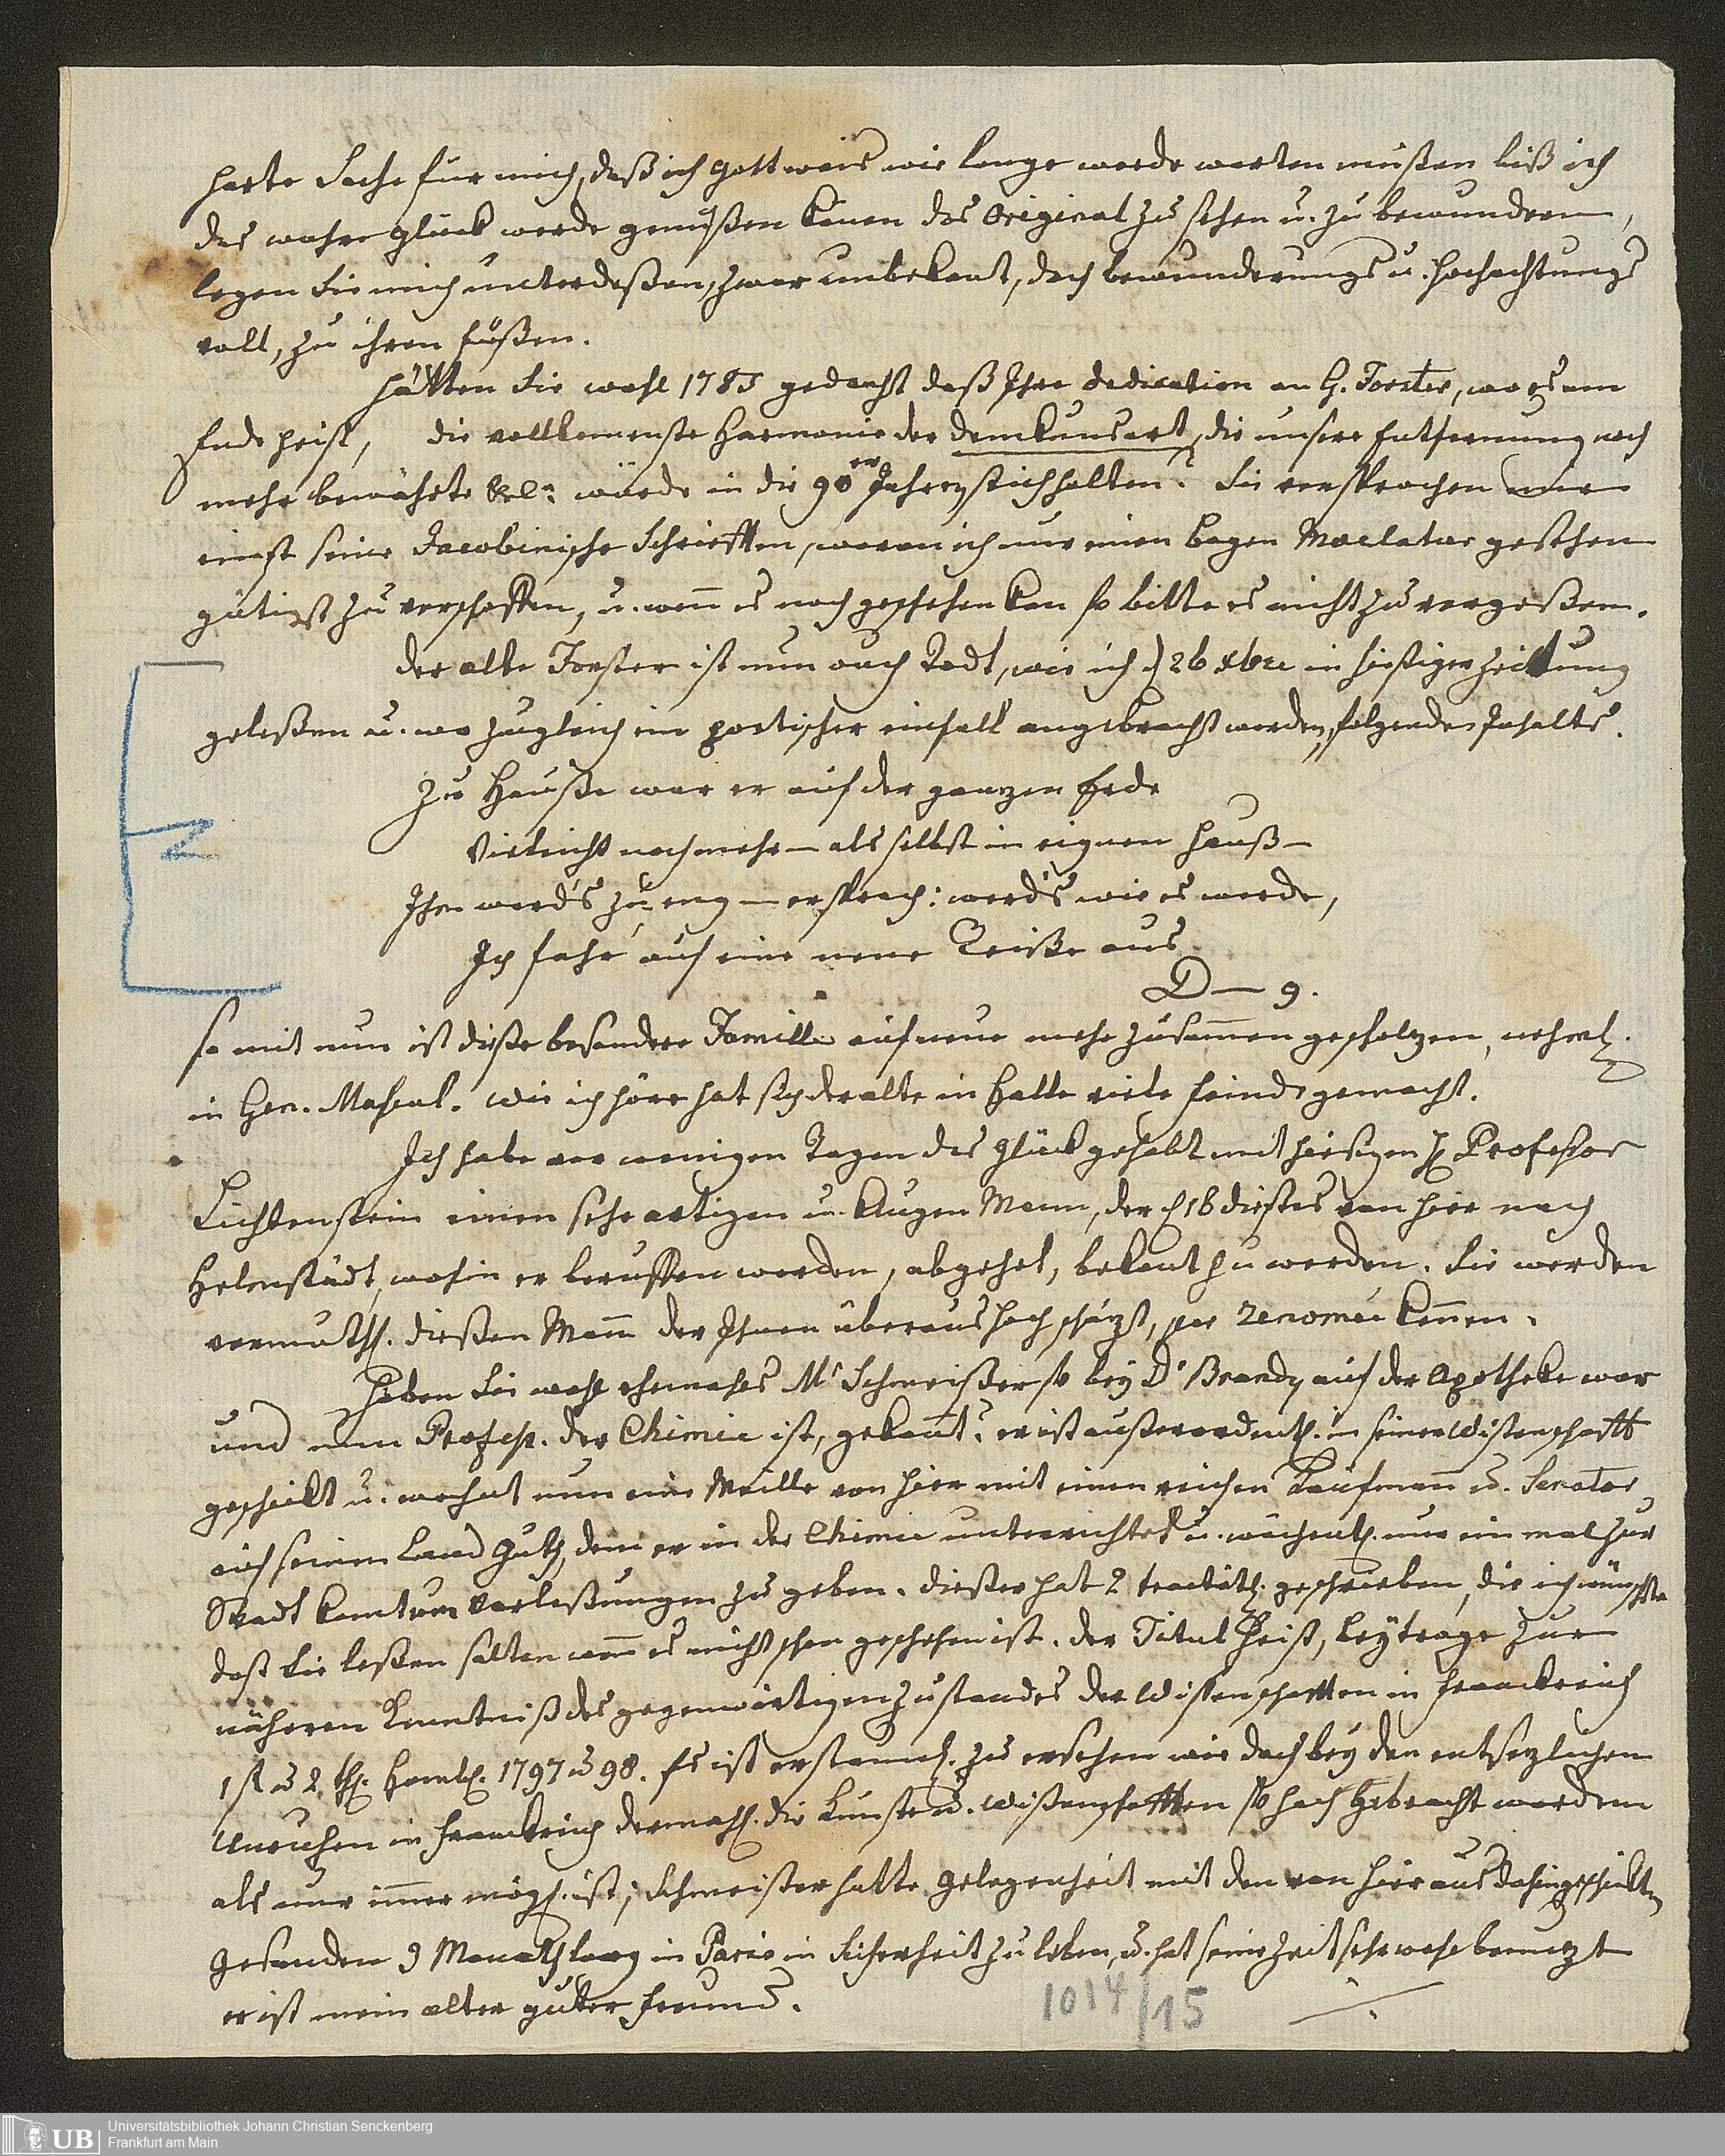 harte Sache für mich, daß ich Gott weis wie lange werde warten müßen biß ich
das wahre Glück werde genüßen könen das Original zu sehen u. zu bewundern,
legen Sie mich unterdeßen, zwar unbekant, doch bewunderungs u. hochachtungs
voll, zu ihren füßen.
Hätten Sie wohl 1785 gedacht daß Ihre dedication an G. Forster, wo es am
Ende heist, die vollkomenste Harmonie der Denkunsart, die unsere Entfernung noch
mehr bewährte würde in die 90er Jahren stichhalten? Sie versprachen mir
einst seine Jacobinische Schrifften, wovon ich nur einen Bogen Maclatur gesehen
gütigst zu verschaffen, u. wenn es noch geschehen kan so bitte es nicht zu vergeßen.
Der alte Forster ist nun auch Todt, wie ich d 26 xbre in hießiger Zeittung
geleßen u. wo zugleich ein poetischer einfall angebracht worden, folgenden Inhalts.
Zu Hauße war er auf der ganzen Erde
Vieleicht noch mehr – als selbst in eignen Hauß –
Ihm ward's zu eng – er sprach: werd's wie es werde,
Ich fahr' auf eine neue Reiße aus.
D — g.
so mit nun ist dieße besondere Famille auf neue mehr zusammen geschmolzen, nehml.
in Gen. Mascul. Wie ich höre hat sich der alte in Halle viele feinde gemacht.
Ich habe vor wenigen Tagen das Glück gehabt mit hiesigen H Professor
Lichtenstein einen sehr artigen u. klugen Mann, der d 16 dießes von hier nach
Helmstädt, wohin er beruffen worden, abgehet, bekant zu werden. Sie werden
vermuthl. dießen Mann der Ihnen überaus hoch schäzt, par renomée kennen.
Haben Sie wohl ehemahls Mr Schmeißer so bey Dr Brande auf der Apotheke war
und nun Profess. der Chimie ist, gekant? er ist außerordentl. in seiner Wissenschafft
geschickt u. wohnt nun eine Meille von hier mit einen reichen Kaufmann u. Senator
auf seinem Land Guth, dem er in der Chimie unterrichtet u. wöchentl. nur ein mal zur
Stadt komt um Vorleßungen zu geben. Dießer hat 2 tractätl. geschrieben, die ich wünschte
daß Sie leßen solten wenn es nicht schon geschehen ist. der Titul heist, Beyträge zur
näheren Kenntniß des gegenwärtigen Zustandes der Wissenschafften in Franckreich
1st u 2 th. Hamb. 1797 u 98. Es ist erstaunl. zu ersehen wie doch bey den entsezlichen
Unruhen in Franckreich dermahl. die Künste u. Wißenschafften so hoch gebracht worden
als nur immer mögl. ist; Schmeisser hatte Gelegenheit mit den von hier aus dahin geschickten
Gesanden 9 Monath lang in Paris in Sicherheit zu leben, u. hat seine Zeit sehr wohl benuzt
er ist mein alter guter freund.
1014/15
UB Universitätsbibliothek Johann Christian Senckenberg
Frankfurt am Main